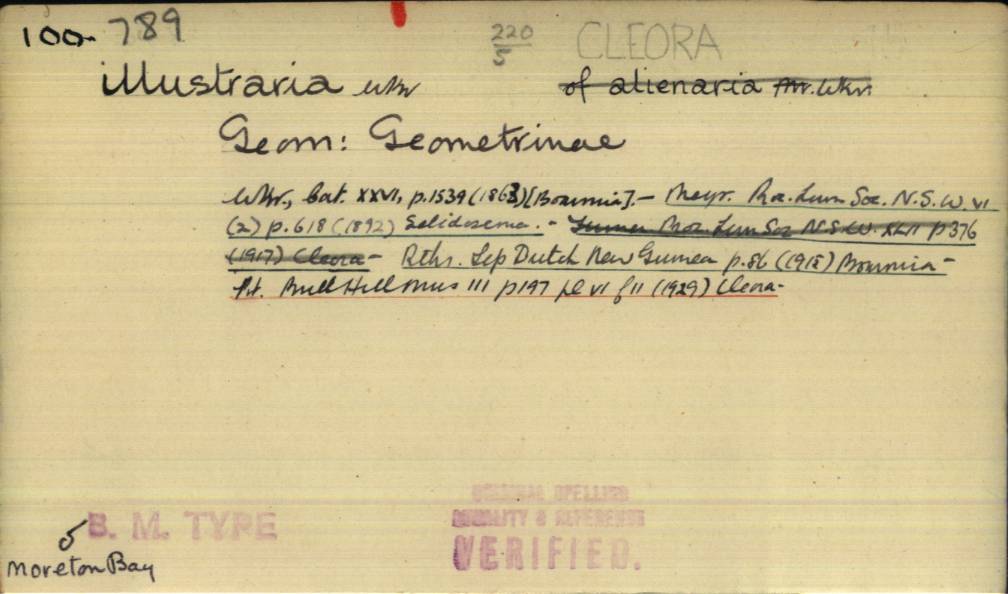 100. 789
220
5
CLEORA
illustraria Wkr
of alienaria Wkr.
Geom: Geometrinae
Wkr., Cat. XXVI, p.1539 (1863) [Boarmia].— Meyr. Proc. Linn Soc. N.S.W. VI
(2) p.618 (1892) Selidosema.- Turner Proc. Linn Soc N.S.W. XLII p376
(1917) Cleora- Rths. Lep Dutch New Guinea p.86 (1915) Boarmia-
Prt. Bull Hill Mus III p197 pl VI f 11 (1929) Cleora-
B. M. TYPE
Moreton Bay
ORIGINAL SPELLING
LOCALITY & REFERENCE
VERIFIED.